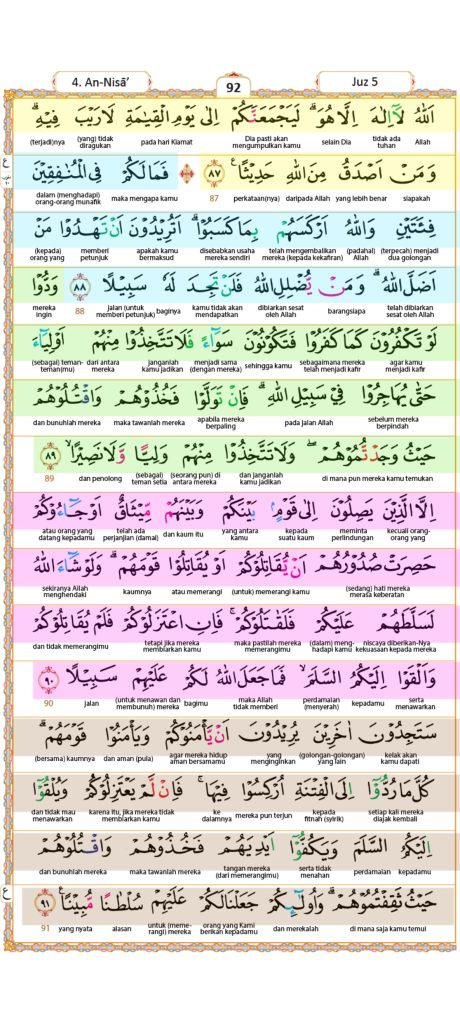 4. An-Nisā’
92
Juz 5
اَللّٰهُ لَآ اِلٰهَ اِلَّا هُوَۗ لَيَجْمَعَنَّكُمْ اِلٰى يَوْمِ الْقِيٰمَةِ لَا رَيْبَ فِيْهِۗ
Allah tidak ada tuhan selain Dia Dia pasti akan mengumpulkan kamu pada hari Kiamat (yang) tidak diragukan (terjadi)nya
وَمَنْ اَصْدَقُ مِنَ اللّٰهِ حَدِيْثًا ࣖ ٨٧ ۞ فَمَا لَكُمْ فِى الْمُنٰفِقِيْنَ
siapakah yang lebih benar daripada Allah perkataan(nya) 87 maka mengapa kamu dalam (menghadapi) orang-orang munafik
فِئَتَيْنِ وَاللّٰهُ اَرْكَسَهُمْ بِمَا كَسَبُوْاۗ اَتُرِيْدُوْنَ اَنْ تَهْدُوْا مَنْ
(terpecah) menjadi dua golongan (padahal) Allah telah mengembalikan mereka (kepada kekafiran) disebabkan usaha mereka sendiri apakah kamu bermaksud memberi petunjuk (kepada) orang yang
اَضَلَّ اللّٰهُۗ وَمَنْ يُّضْلِلِ اللّٰهُ فَلَنْ تَجِدَ لَهٗ سَبِيْلًا ٨٨ وَدُّوْا
telah dibiarkan sesat oleh Allah barangsiapa dibiarkan sesat oleh Allah kamu tidak akan mendapatkan baginya jalan (untuk memberi petunjuk) 88 mereka ingin
لَوْ تَكْفُرُوْنَ كَمَا كَفَرُوْا فَتَكُوْنُوْنَ سَوَاۤءً فَلَا تَتَّخِذُوْا مِنْهُمْ اَوْلِيَاۤءَ
agar kamu menjadi kafir sebagaimana mereka telah menjadi kafir sehingga kamu menjadi sama (dengan mereka) janganlah kamu jadikan dari antara mereka (sebagai) teman-teman(mu)
حَتّٰى يُهَاجِرُوْا فِيْ سَبِيْلِ اللّٰهِۗ فَاِنْ تَوَلَّوْا فَخُذُوْهُمْ وَاقْتُلُوْهُمْ
sebelum mereka berpindah pada jalan Allah apabila mereka berpaling maka tawanlah mereka dan bunuhlah mereka
حَيْثُ وَجَدْتُّمُوْهُمْۖ وَلَا تَتَّخِذُوْا مِنْهُمْ وَلِيًّا وَّلَا نَصِيْرًاۙ ٨٩
di mana pun mereka kamu temukan dan janganlah kamu jadikan (seorang pun) di antara mereka (sebagai) teman setia dan penolong 89
اِلَّا الَّذِيْنَ يَصِلُوْنَ اِلٰى قَوْمٍۢ بَيْنَكُمْ وَبَيْنَهُمْ مِّيْثَاقٌ اَوْ جَاۤءُوْكُمْ
kecuali orang-orang yang meminta perlindungan kepada suatu kaum yang antara kamu dan kaum itu telah ada perjanjian (damai) atau orang yang datang kepadamu
حَصِرَتْ صُدُوْرُهُمْ اَنْ يُّقَاتِلُوْكُمْ اَوْ يُقَاتِلُوْا قَوْمَهُمْۗ وَلَوْ شَاۤءَ اللّٰهُ
(sedang) hati mereka merasa keberatan (untuk) memerangi kamu atau memerangi kaumnya sekiranya Allah menghendaki
لَسَلَّطَهُمْ عَلَيْكُمْ فَلَقٰتَلُوْكُمْۚ فَاِنِ اعْتَزَلُوْكُمْ فَلَمْ يُقَاتِلُوْكُمْ
niscaya diberikan-Nya kekuasaan kepada mereka (dalam) menghadapi kamu maka pastilah mereka memerangimu tetapi jika mereka membiarkan kamu dan tidak memerangimu
وَاَلْقَوْا اِلَيْكُمُ السَّلَمَۙ فَمَا جَعَلَ اللّٰهُ لَكُمْ عَلَيْهِمْ سَبِيْلًا ٩٠
serta menawarkan kepadamu perdamaian (menyerah) maka Allah tidak memberi bagimu (untuk menawan dan membunuh) mereka jalan 90
سَتَجِدُوْنَ اٰخَرِيْنَ يُرِيْدُوْنَ اَنْ يَّأْمَنُوْكُمْ وَيَأْمَنُوْا قَوْمَهُمْۗ
kelak akan kamu dapati (golongan-golongan) yang lain yang menginginkan agar mereka hidup aman bersamamu dan aman (pula) (bersama) kaumnya
كُلَّمَا رُدُّوْٓا اِلَى الْفِتْنَةِ اُرْكِسُوْا فِيْهَاۚ فَاِنْ لَّمْ يَعْتَزِلُوْكُمْ وَيُلْقُوْٓا
setiap kali mereka diajak kembali kepada fitnah (syirik) mereka pun terjun ke dalamnya karena itu, jika mereka tidak membiarkan kamu dan tidak mau menawarkan
اِلَيْكُمُ السَّلَمَ وَيَكُفُّوْٓا اَيْدِيَهُمْ فَخُذُوْهُمْ وَاقْتُلُوْهُمْ
kepadamu perdamaian serta tidak menahan tangan mereka (dari memerangimu) maka tawanlah mereka dan bunuhlah mereka
حَيْثُ ثَقِفْتُمُوْهُمْۗ وَاُولٰۤىِٕكُمْ جَعَلْنَا لَكُمْ عَلَيْهِمْ سُلْطٰنًا مُّبِيْنًا ࣖ ٩١
di mana saja kamu temui dan merekalah orang yang Kami berikan kepadamu untuk (memerangi) mereka alasan yang nyata 91